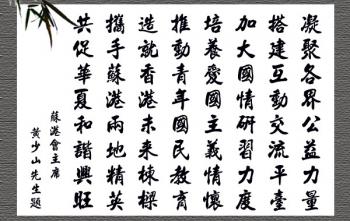 凝聚各界公益力量
搭建互動交流平臺
加大國情研習力度
培養愛國主義情懷
推動青年國民教育
造就香港未來棟樑
攜手蘇港兩地精英
共促華夏和諧興旺
蘇港會主席
黃少山先生題